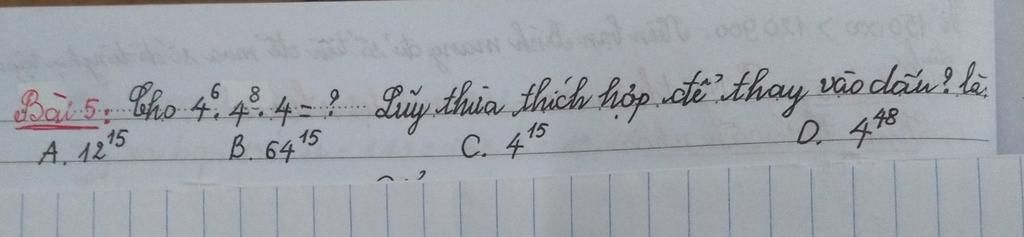 Bài 5: Cho 4⁶. 4⁸. 4 = ? Lũy thừa thích hợp để thay vào dấu ? là.
A. 12¹⁵ B. 64¹⁵ C. 4¹⁵ D. 4⁴⁸